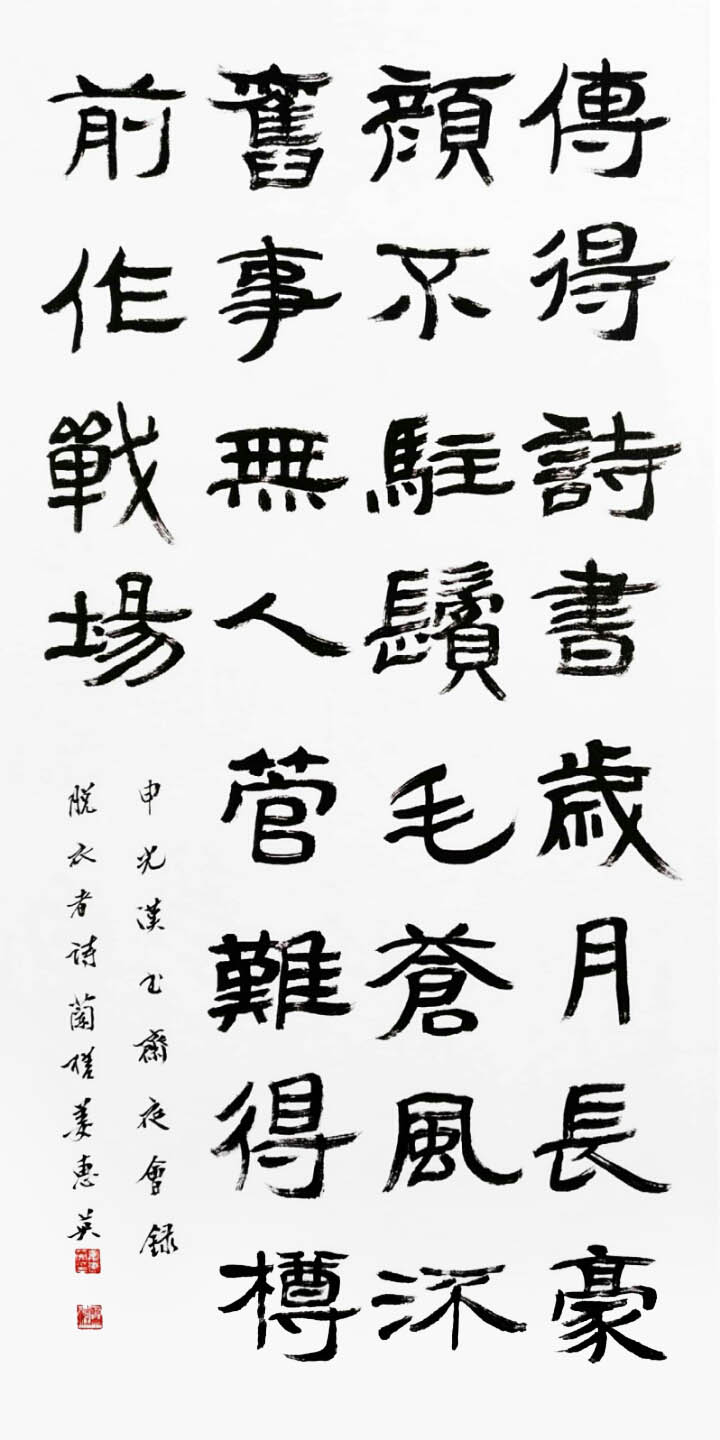 傳得詩書歲月長豪
顔不駐鬢毛蒼風㳅
舊事無人管難得樽
前作戰場
申光漢书齋夜會録
脫衣者詩蘭槎姜惠英